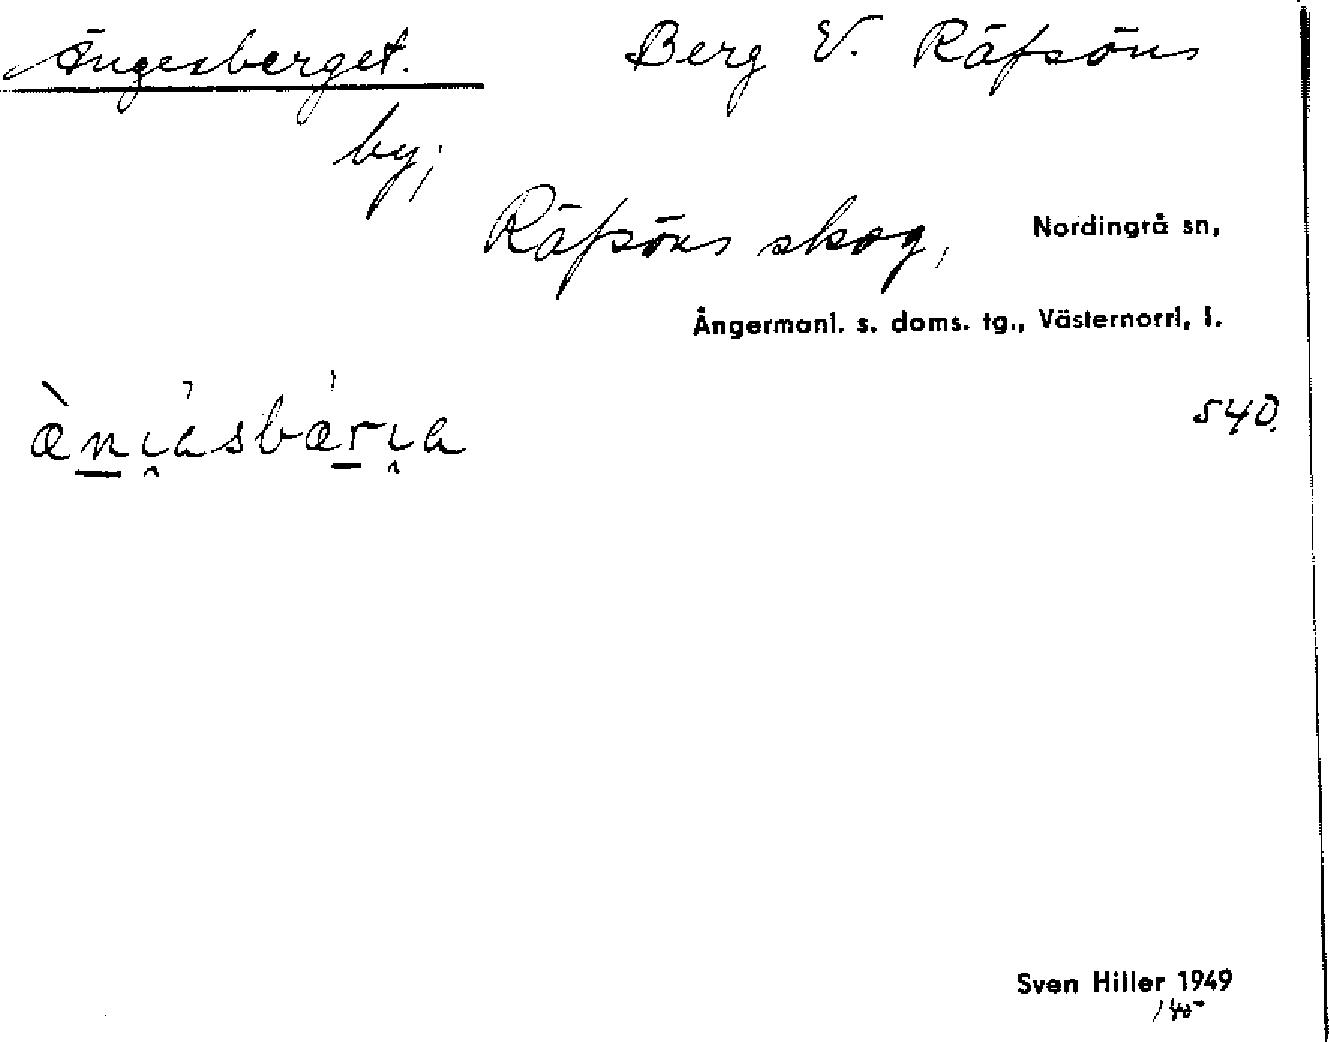 Ängesberget. Berg V. Räfsöns
by;
Räfsöns skog, Nordingrå sn,
Ångermanl. s. doms. tg., Västernorrl. l.
540.
Sven Hiller 1949